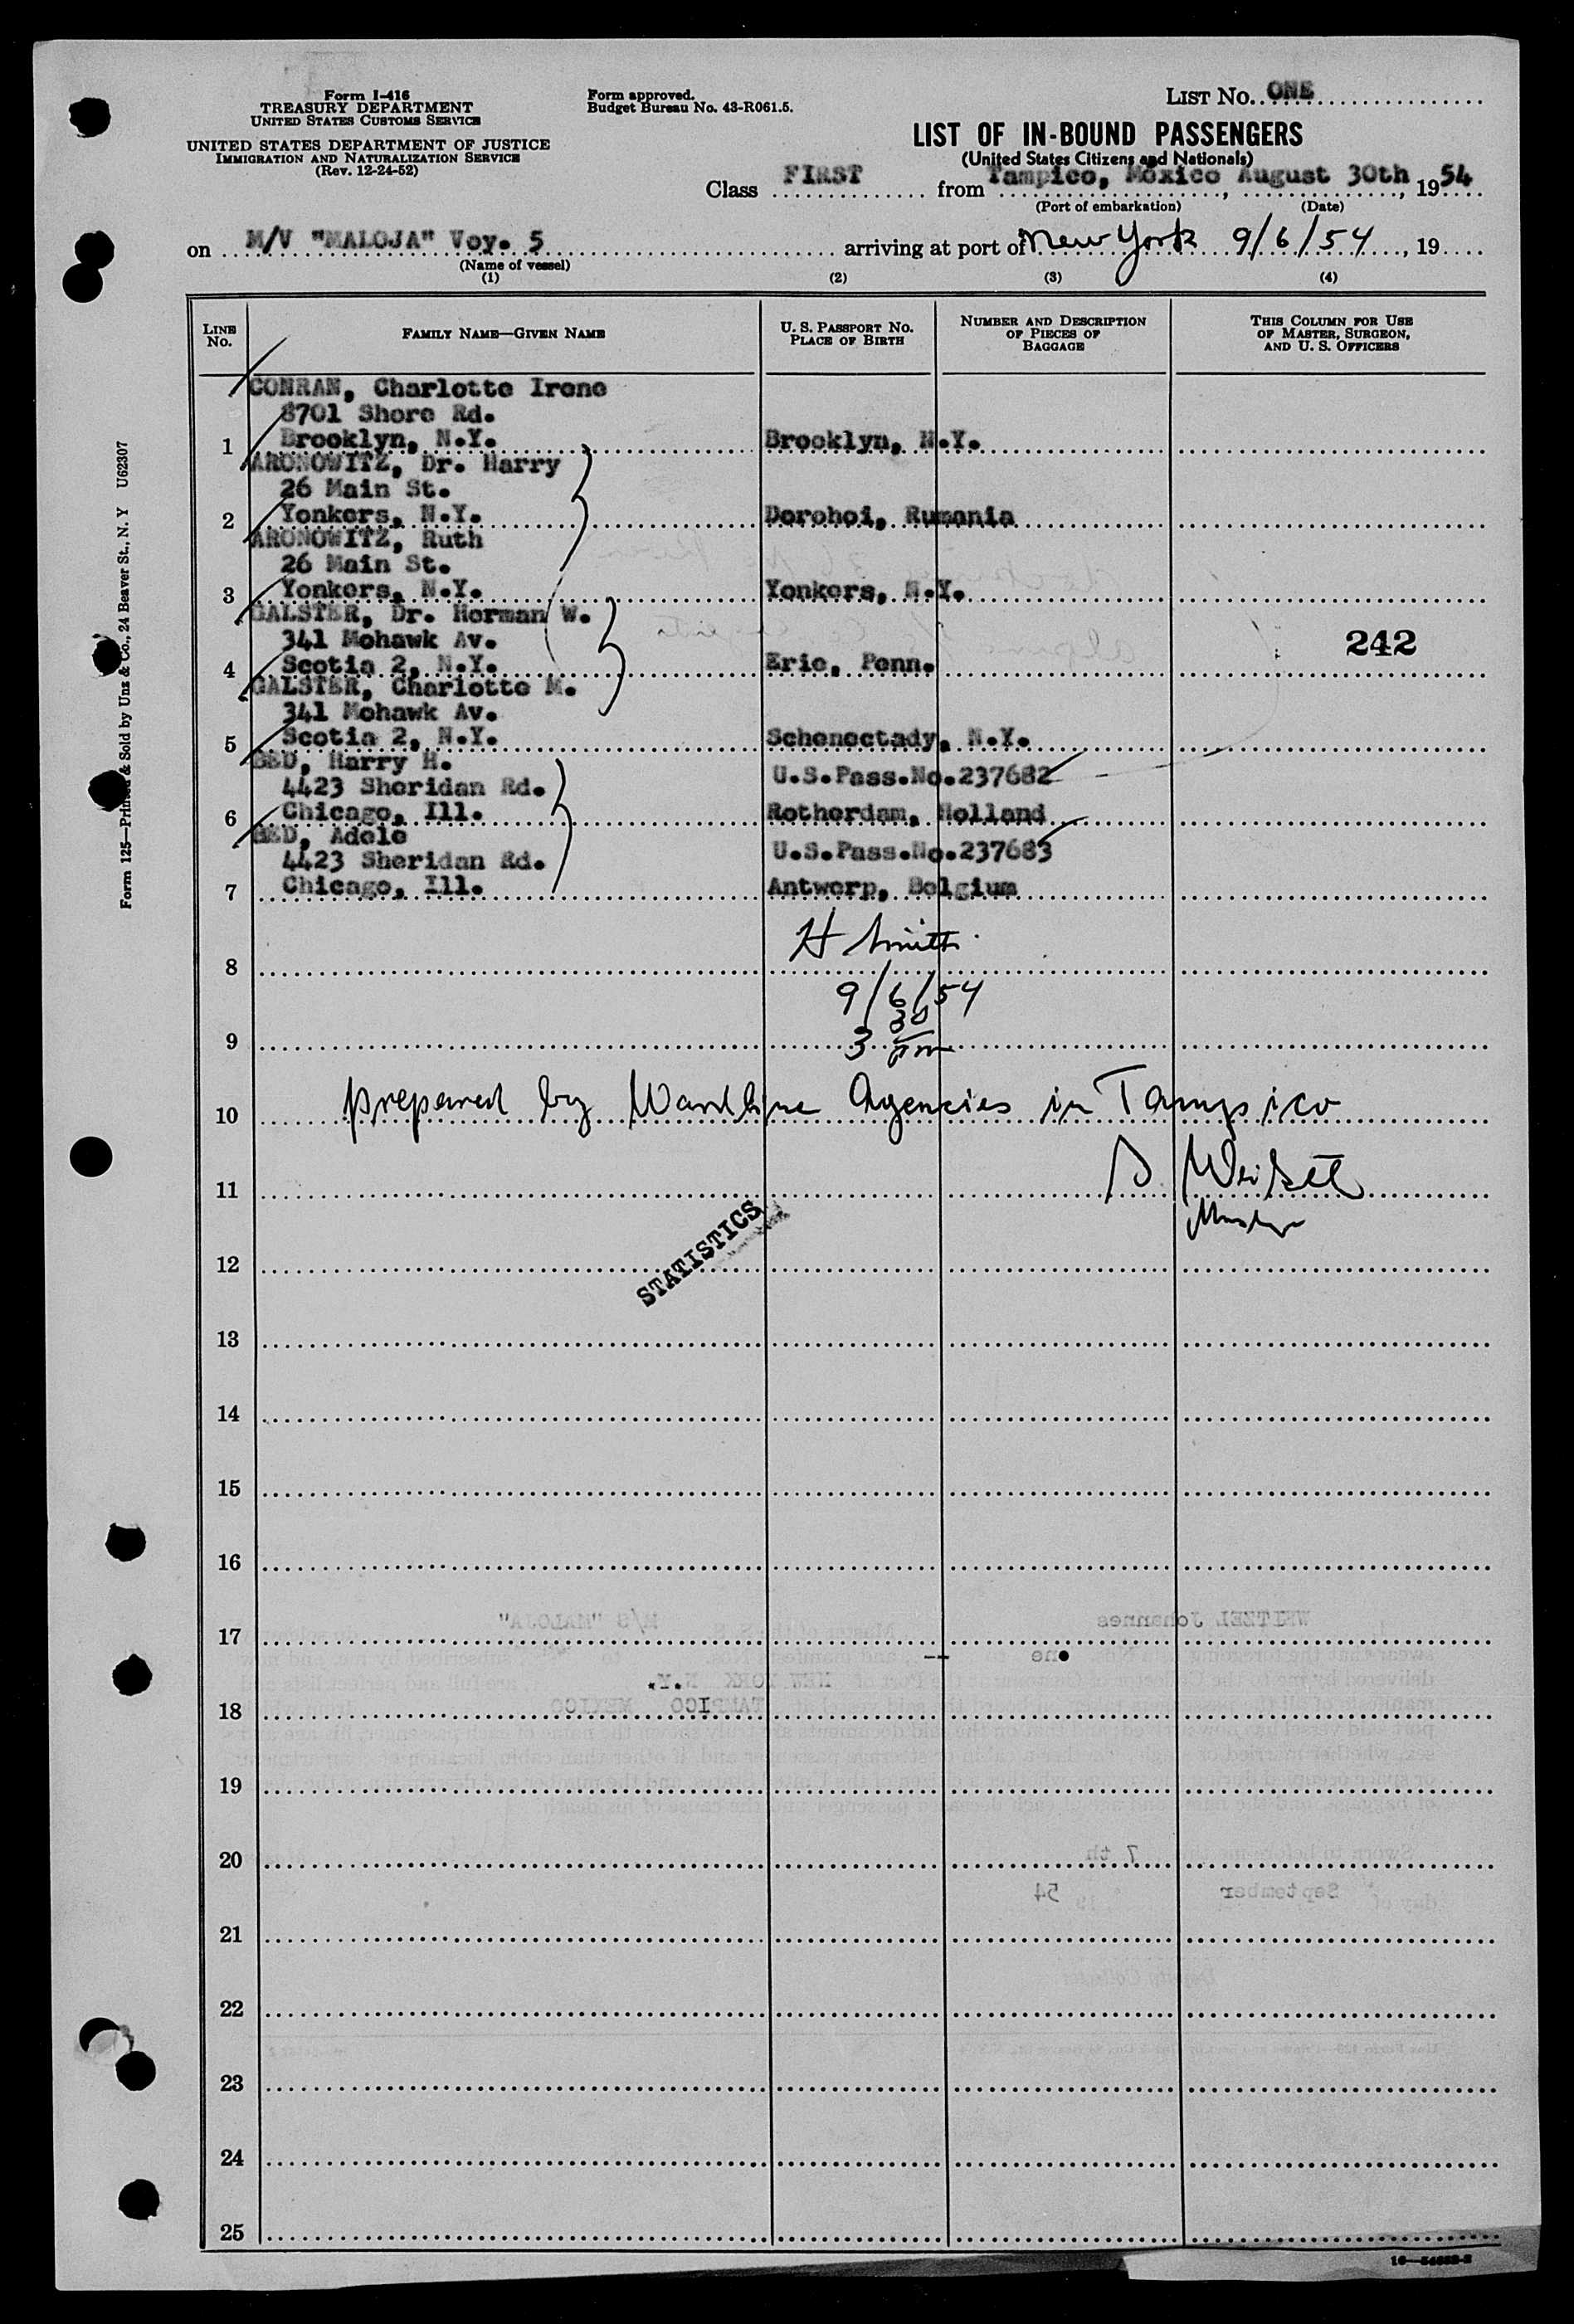 Form I-416
TREASURY DEPARTMENT
UNITED STATES CUSTOMS SERVICE
UNITED STATES DEPARTMENT OF JUSTICE
IMMIGRATION AND NATURALIZATION SERVICE
(Rev. 12-24-52)
Form approved.
Budget Bureau No. 43-R061.5.
LIST No. ONE
LIST OF IN-BOUND PASSENGERS
(United States Citizens and Nationals)
Class FIRST from Tampico, Mexico August 30th, 1954
(Port of embarkation) (Date)
on M/V "MALOJA" Voy. 5 arriving at port of New York 9/6/54, 19
(Name of vessel)
(1) (2) (3) (4)
LINE No.
FAMILY NAME—GIVEN NAME
U. S. PASSPORT No. PLACE OF BIRTH
NUMBER AND DESCRIPTION OF PIECES OF BAGGAGE
THIS COLUMN FOR USE OF MASTER, SURGEON, AND U. S. OFFICERS
CONRAN, Charlotte Irene
8701 Shore Rd.
1 Brooklyn, N.Y. Brooklyn, N.Y.
ARONOWITZ, Dr. Harry
26 Main St.
2 Yonkers, N.Y. Dorohoi, Rumania
ARONOWITZ, Ruth
26 Main St.
3 Yonkers, N.Y. Yonkers, N.Y.
GALSTER, Dr. Herman W.
341 Mohawk Av. 242
4 Scotia 2, N.Y. Erie, Penn.
GALSTER, Charlotte M.
341 Mohawk Av.
5 Scotia 2, N.Y. Schenectady, N.Y.
GED, Harry H.
4423 Sheridan Rd. U.S.Pass.No.237682
6 Chicago, Ill. Rotherdam, Holland
GED, Adele
4423 Sheridan Rd. U.S.Pass.No.237683
7 Chicago, Ill. Antwerp, Belgium
H Smith
8
9/6/54
9 3 30 pm
10 prepared by Wardline Agencies in Tampico
11
Master
STATISTICS
12
13
14
15
16
17
18
19
20
21
22
23
24
25
Form 125—Printed & Sold by Unz & Co., 24 Beaver St., N. Y U62307